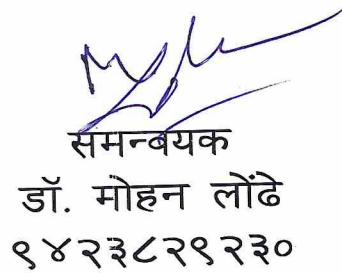 समन्वयक
डॉ. मोहन लोंढे
९४२३८२९२३०